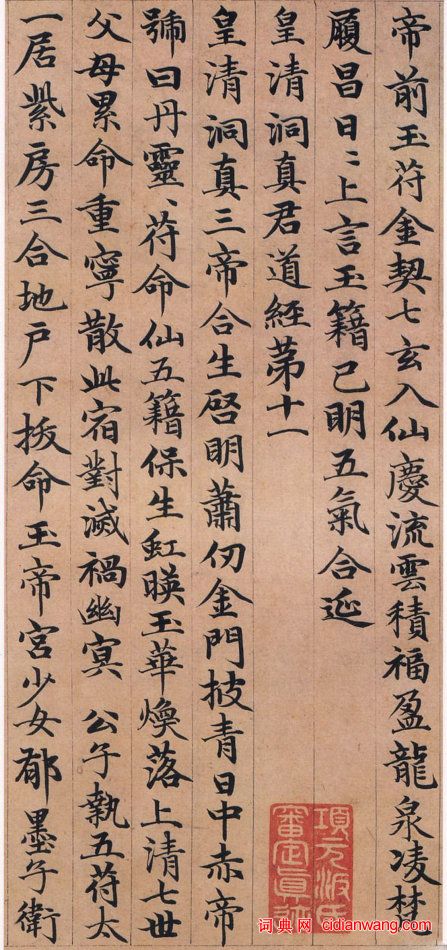 帝前玉苻金契七玄入仙慶流雲積福盈龍泉凌梵
履昌日〻上言玉籍已明五氣合延
皇清洞真君道經苐十一
皇清洞真三帝合生啓明蕭仞金門披青日中赤帝
號曰丹靈〻苻命仙五籍保生虹暎玉華煥落上清七世
父母累命重寧散此宿對滅禍幽冥 公子執五苻太
一居紫房三合地户下拔命玉帝宮少女郁墨子衛
項元汴氏
審定真
词典网 cidianwang.com